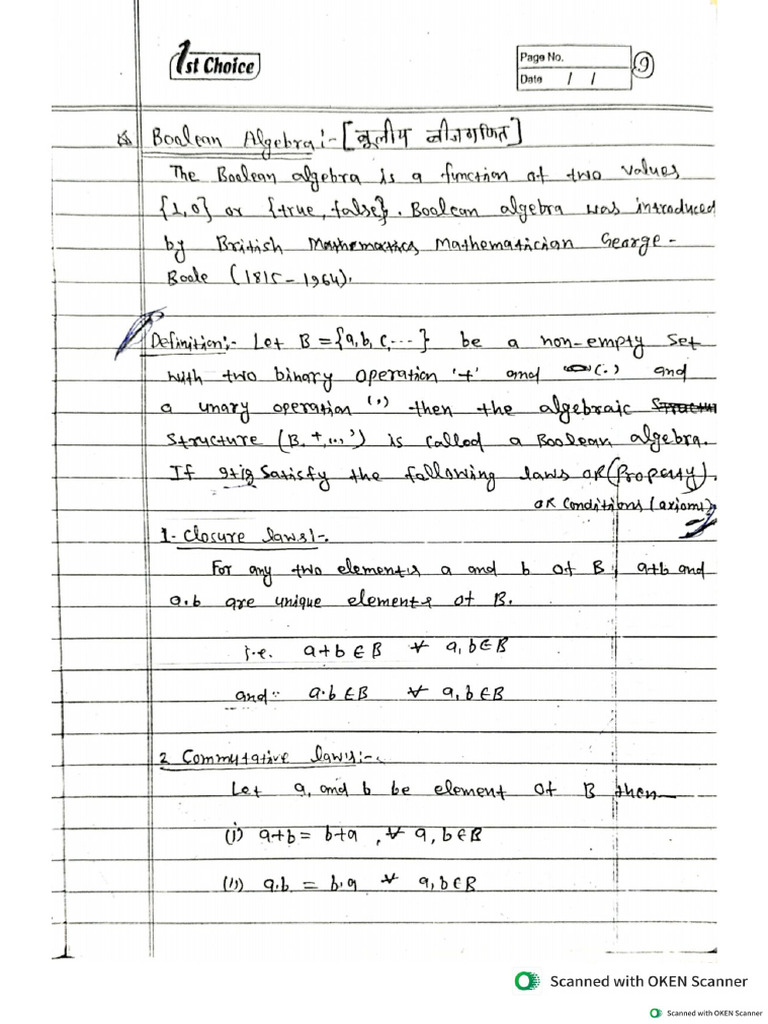 1st Choice
Page No. 9
Date / /
Boolean Algebra :- [बुलीय बीजगणित]
The Boolean algebra is a function of two values
{1,0} or {true, false}. Boolean algebra was introduced
by British Mathematics Mathematician George-
Boole (1815-1964).
Definition:- Let B = {a, b, c, ...} be a non-empty set
with two binary operation '+' and (.) and
a unary operation (') then the algebraic
structure (B, +, ., ') is called a Boolean algebra.
If satisfy the following laws OR (Property).
OR Conditions (axioms)
1- Closure laws :-
For any two elements a and b of B, a+b and
a.b are unique elements of B.
i.e. a+b ∈ B ∀ a, b ∈ B
and a.b ∈ B ∀ a, b ∈ B
2 Commutative laws :-
Let a, and b be element of B then—
(i) a+b = b+a , ∀ a, b ∈ B
(ii) a.b = b.a ∀ a, b ∈ B
Scanned with OKEN Scanner
Scanned with OKEN Scanner